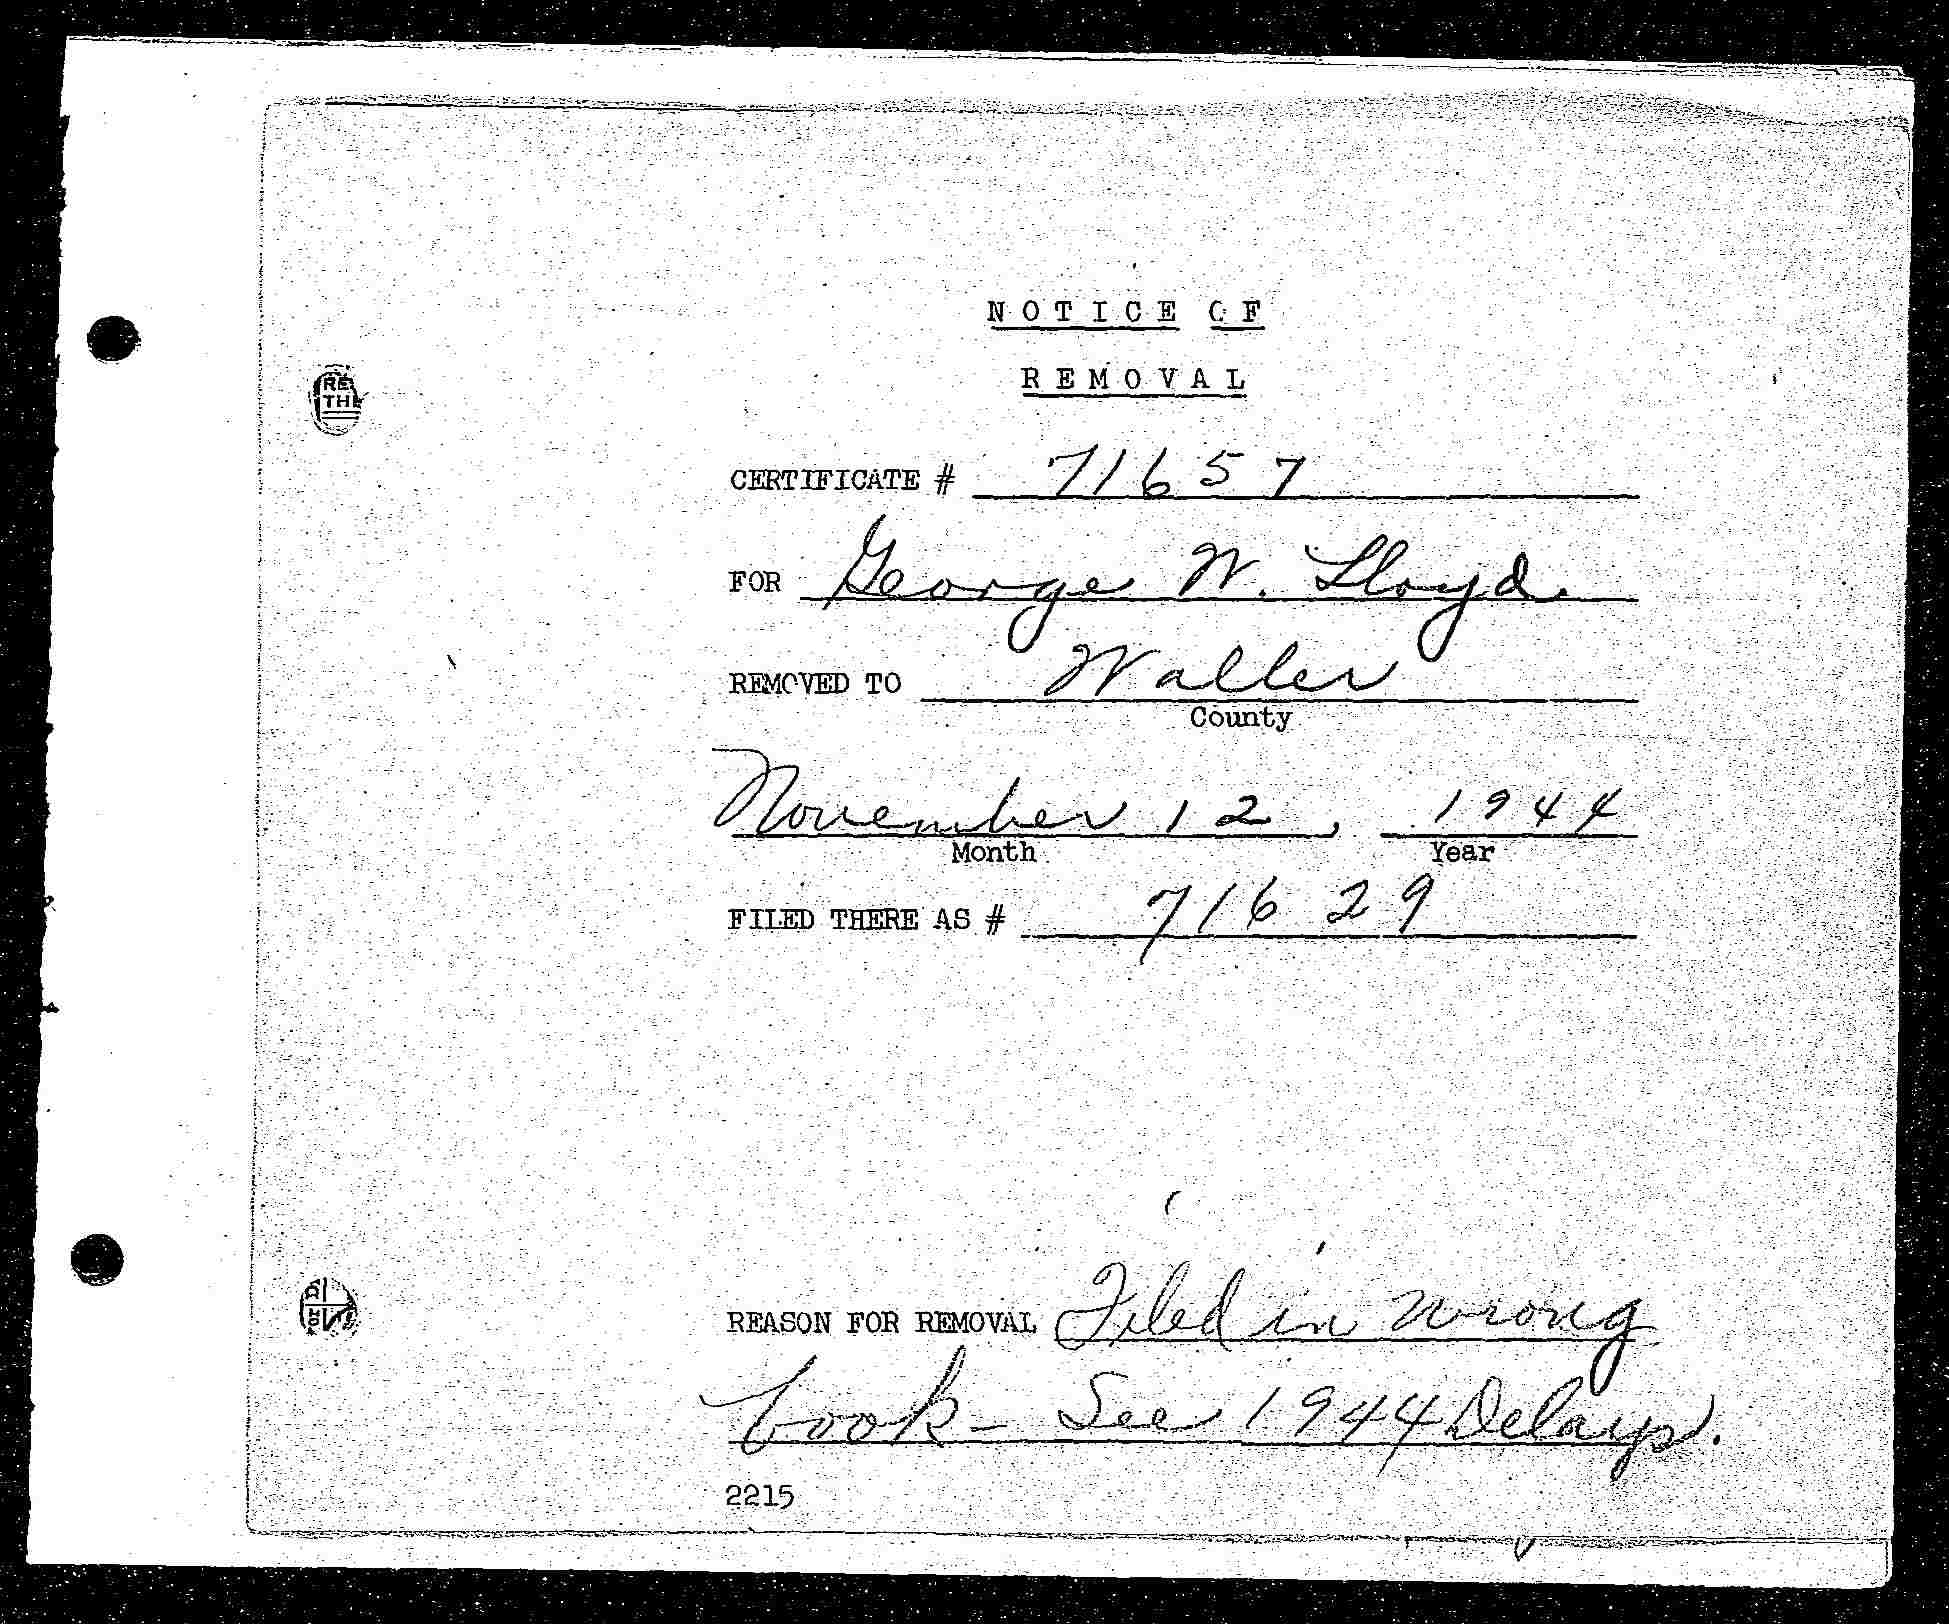 NOTICE OF
REMOVAL
CERTIFICATE # 71657
FOR George W. Lloyd.
REMOVED TO Waller
County
November 12, 1944
Month Year
FILED THERE AS # 71629
REASON FOR REMOVAL Filed in wrong
book - See 1944 Delays.
2215
RE
TH